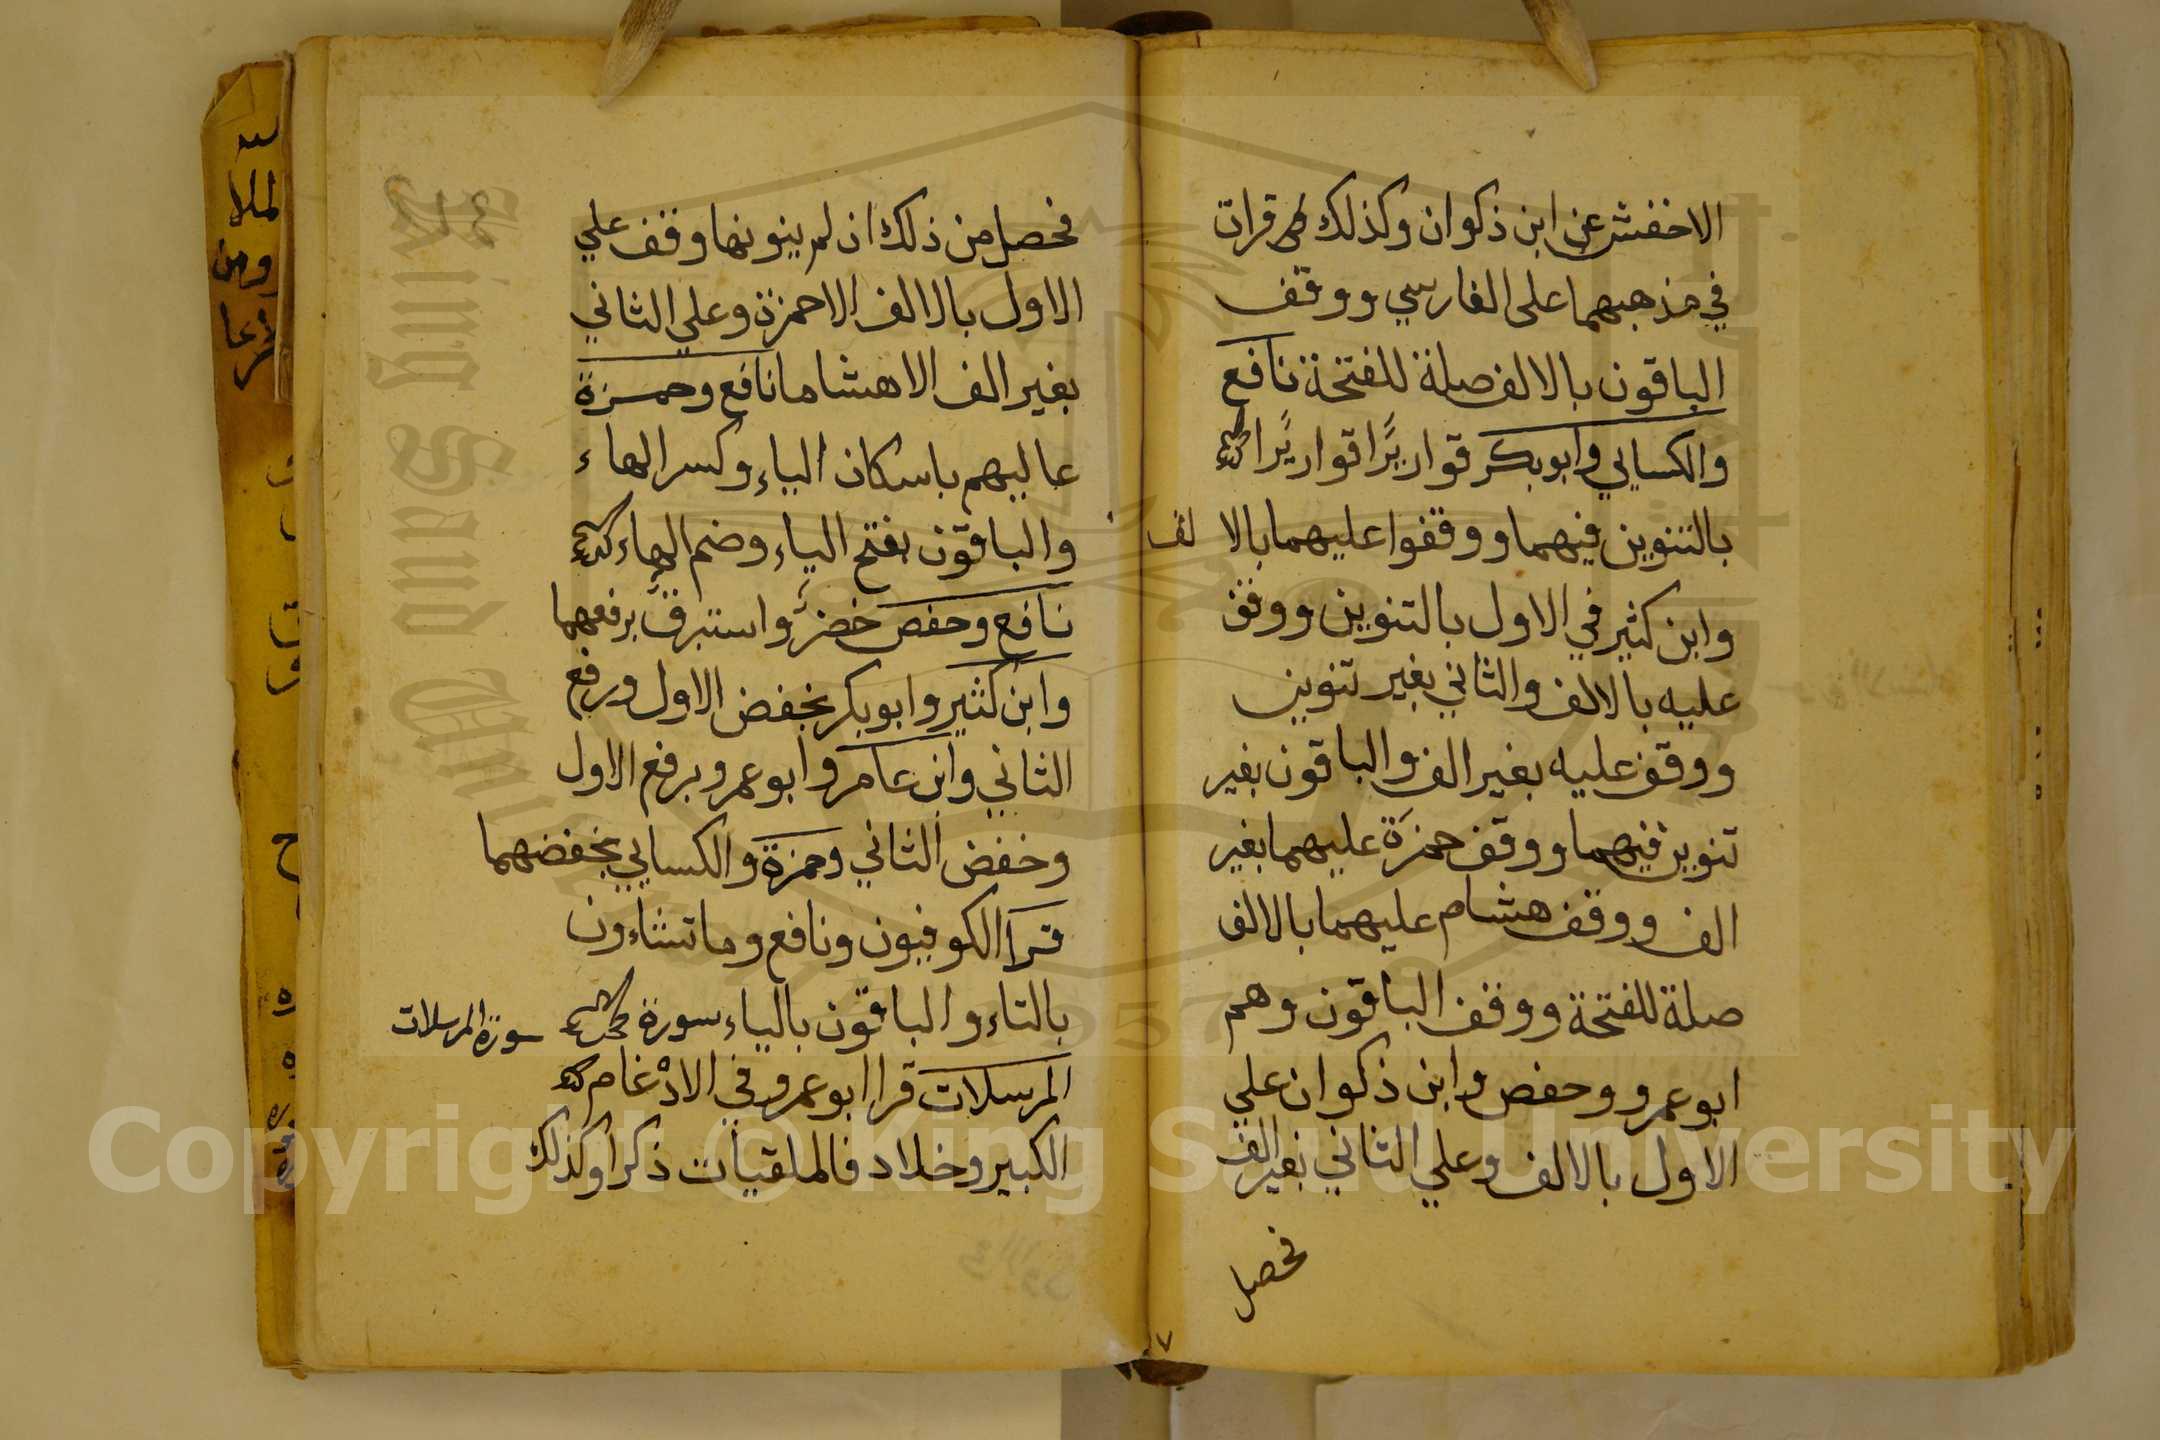 الاخفش عن ابن ذكوان وكذلك قرات
في مذهبهما على الفارسي ووقف
الباقون بالالف صلة للفتحة نافع
والكسايي وابو بكر قواريرًا قواريرًا
بالتنوين فيهما ووقفوا عليهما بالا لف
وابن كثير في الاول بالتنوين ووقف
عليه بالالف والثاني بغير تنوين
ووقف عليه بغير الف والباقون بغير
تنوين فيهما ووقف حمزة عليهما بغير
الف ووقف هشام عليهما بالالف
صلة للفتحة ووقف الباقون وهم
ابو عمرو وحفص وابن ذكوان علي
الاول بالالف وعلي الثاني بغير الف
فحصل
٧
فحصل من ذلك ان لم ينونها وقف علي
الاول بالالف الا حمزة وعلي الثاني
بغير الف الا هشاما نافع وحمزة
عاليهم باسكان الياء وكسر الهاء
والباقون بفتح الياء وضم الهاء
نافع وحفص خضرٌ واستبرقٌ برفعهما
وابن كثير وابو بكر بخفض الاول ورفع
الثاني وابن عامر وابو عمرو برفع الاول
وخفض الثاني وحمزة والكسايي بخفضهما
قرا الكوفيون ونافع وما تشاءون
بالتاء والباقون بالياء سورة
سورة المرسلات
المرسلات قرا ابو عمرو في الادغام
الكبير وخلاد فالملقيات ذكرا وكذلك
Copyright © King Saud University
King Saud University
1957